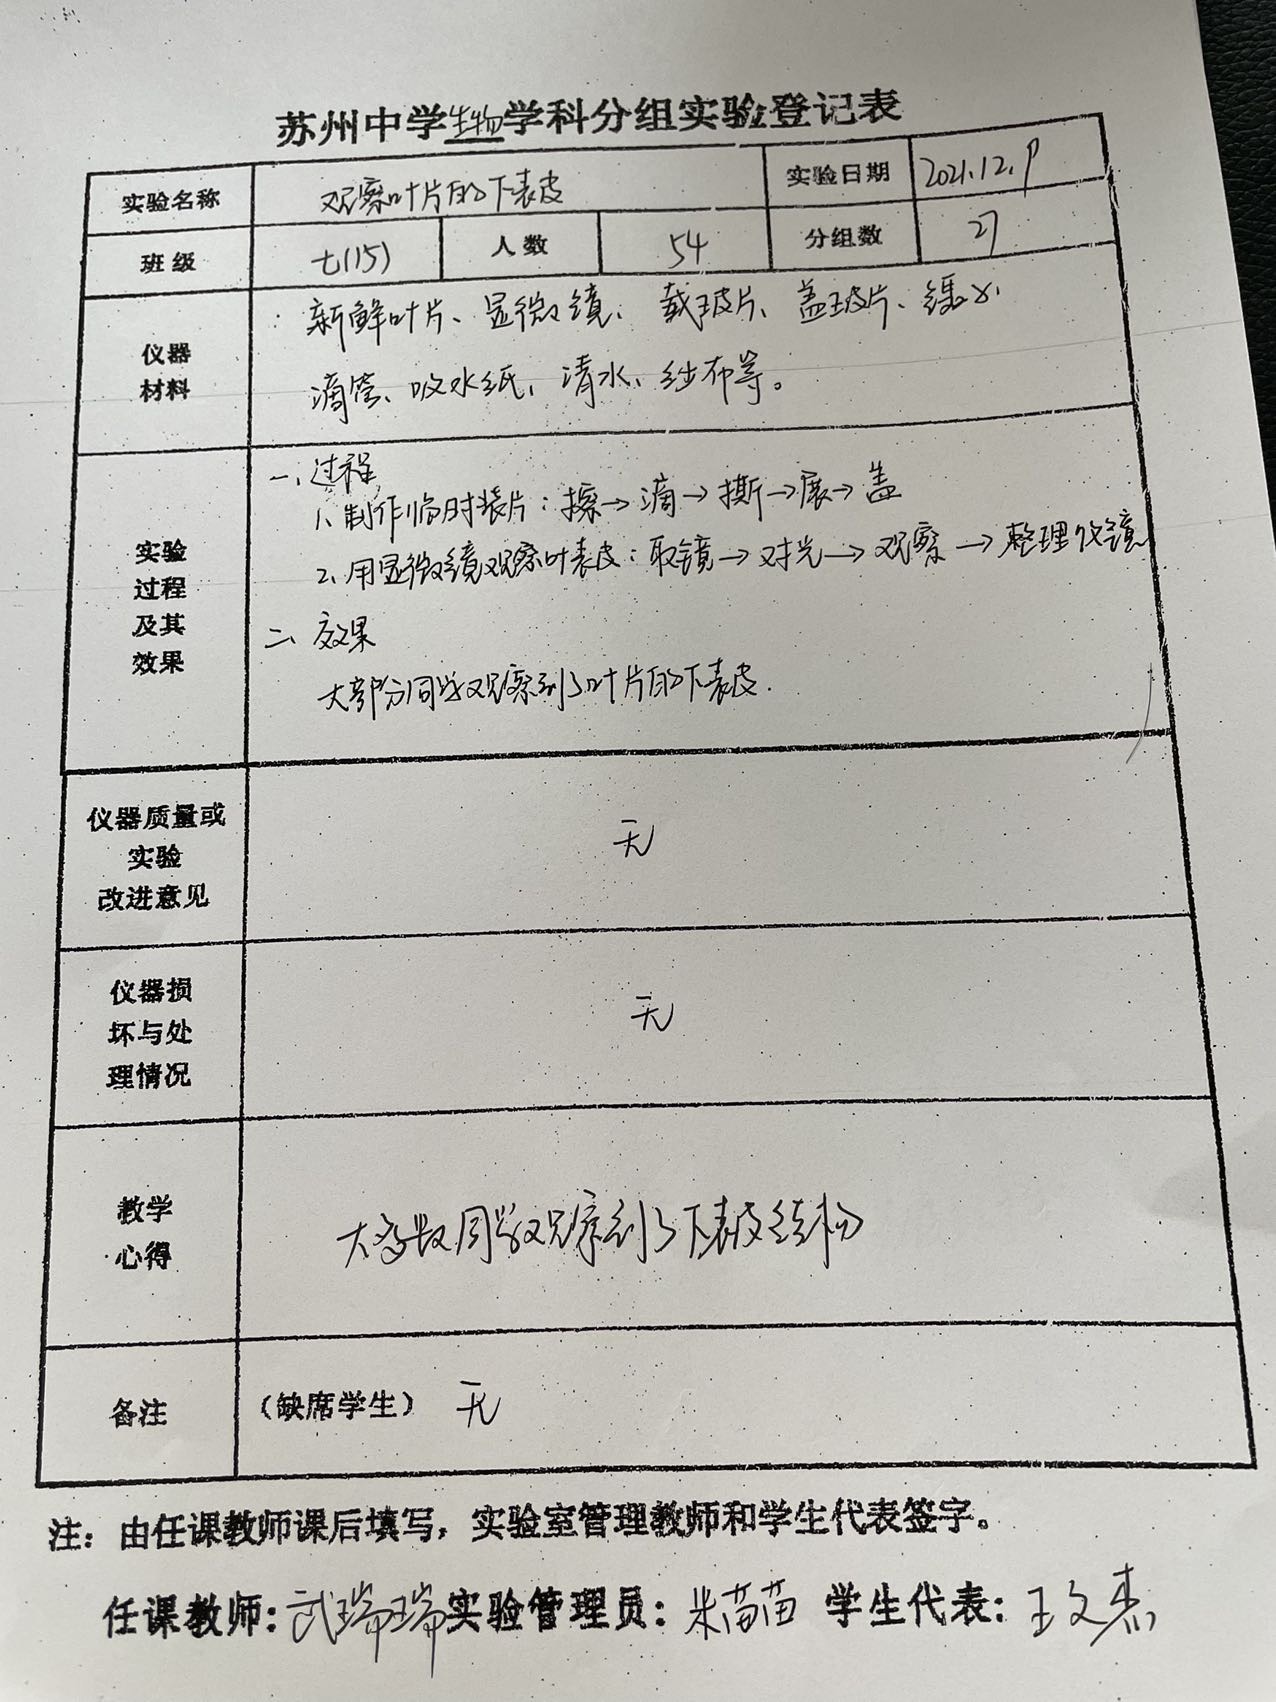 苏州中学生物学科分组实验登记表
实验名称 观察叶片的下表皮 实验日期 2021.12.9
班级 七(15) 人数 54 分组数 27
仪器
材料
新鲜叶片、显微镜、载玻片、盖玻片、镊子、
滴管、吸水纸、清水、纱布等。
实验
过程
及其
效果
一、过程
1、制作临时装片：擦→滴→撕→展→盖
2、用显微镜观察叶表皮：取镜→对光→观察→整理收镜
二、效果
大部分同学观察到了叶片的下表皮.
仪器质量或
实验
改进意见
无
仪器损
坏与处
理情况
无
教学
心得
大多数同学观察到了下表皮结构
备注 （缺席学生） 无
注：由任课教师课后填写，实验室管理教师和学生代表签字。
任课教师：武瑞瑞 实验管理员：米苗苗 学生代表：王文杰